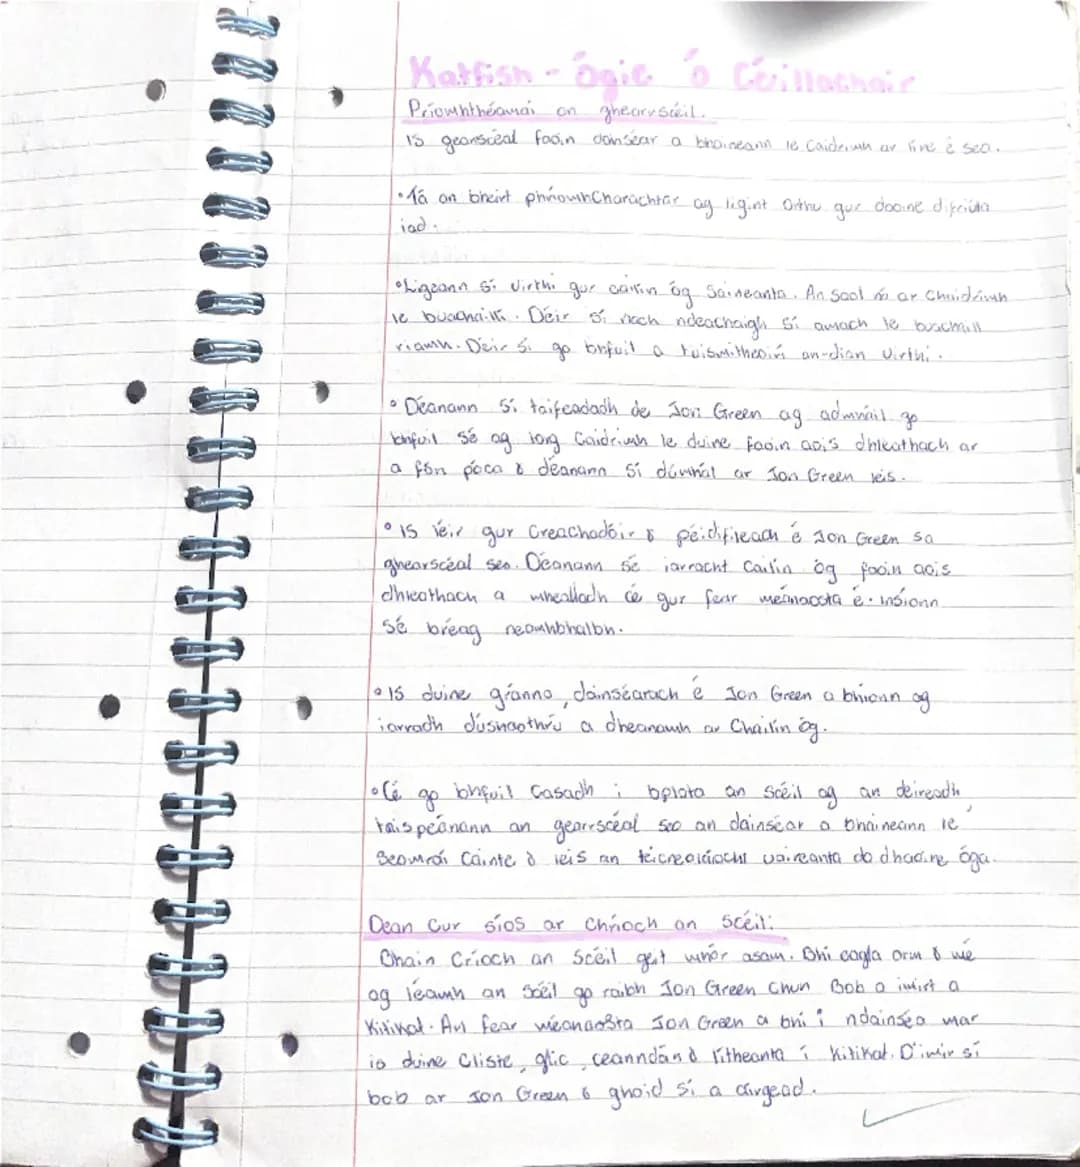 Katfish - Ógie Ó Céillachair
Príomhthéamaí an ghearrscéil.
is gearrscéal faoin dainséar a bhaineann le Caidrimh ar líne é seo.
• Tá an bheirt phríomhCharachtar ag ligint Orthu gur daoine difriúla
iad.
• Ligeann Sí Uirthi gur cailín óg Saineanta. An saol ar Chaidrimh
le buachaillí. Deir Sí nach ndeachaigh Sí amach le buachaill
riamh. Deir Sí go bhfuil a tuismitheoirí an-dian Uirthi.
• Déanann Sí taifeadadh de Jon Green ag admháil go
bhfuil Sé ag lorg Caidrimh le duine faoin aois dhleathach ar
a fón póca & déanann Sí dúmhál ar Jon Green leis.
• Is léir gur Creachadóir & péidifileach é Jon Green sa
ghearscéal seo. Déanann Sé iarracht Cailín óg faoin aois
dhleathach a mhealladh cé gur fear meánaosta é. insíonn
Sé bréag neamhbhalbh.
• Is duine gránna, dainséarach é Jon Green a bhíonn ag
iarradh dúshaothrú a dheanamh ar Chailín óg.
• Cé go bhfuil Casadh i bplota an Scéil ag an deireadh,
taispeánann an gearrscéal seo an dainséar a bhaineann le
Seomraí Cainte & leis an teicneolaíocht uaireanta do dhaoine óga.
Dean Cur síos ar Chríoch an Scéil:
Bhain Críoch an Scéil geit mhór asam. Bhí eagla orm & mé
ag léamh an Scéil go raibh Jon Green Chun Bob a imirt a
Kitikat. An fear méanaosta Jon Green a bhí i ndainséa mar
is duine Cliste, glic, ceanndána & ritheanta í Kitikat. D'imir sí
bob ar Jon Green & ghoid Sí a airgead.